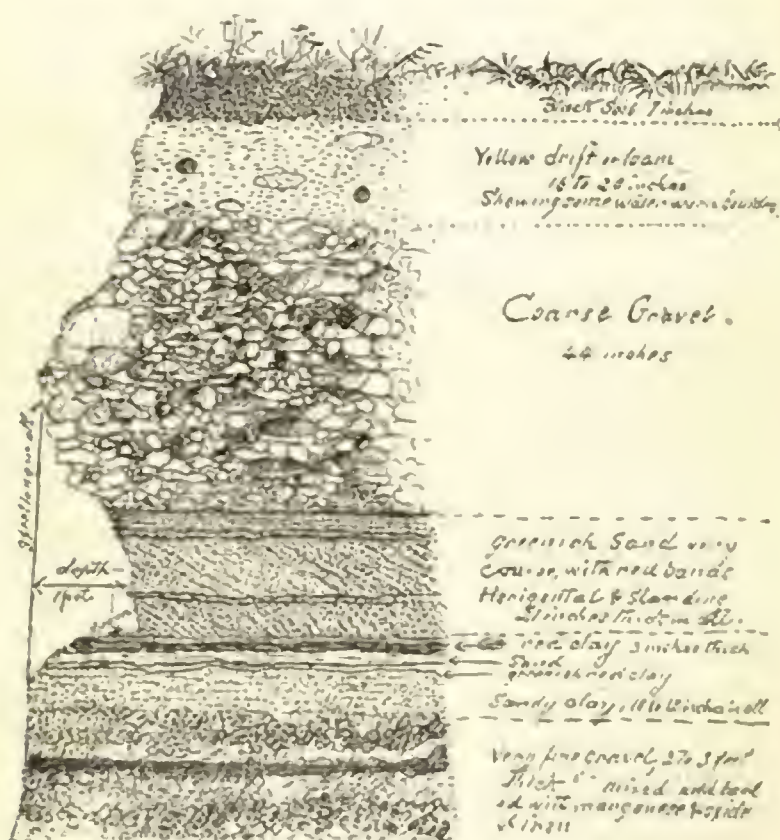 Black Soil 7 inches
Yellow drift or loam
to 20 inches
Showing some water worn
Coarse Gravel.
44 inches
greenish Sand very
Course, with red bands
Horizontal & Slanding
inches thick in all.
depth
1 foot
red clay 3 inches thick
Sand
greenish red clay
Sandy clay, in all
Very fine gravel, 2 to 3 feet
thick mixed and
ed with manganese
of iron